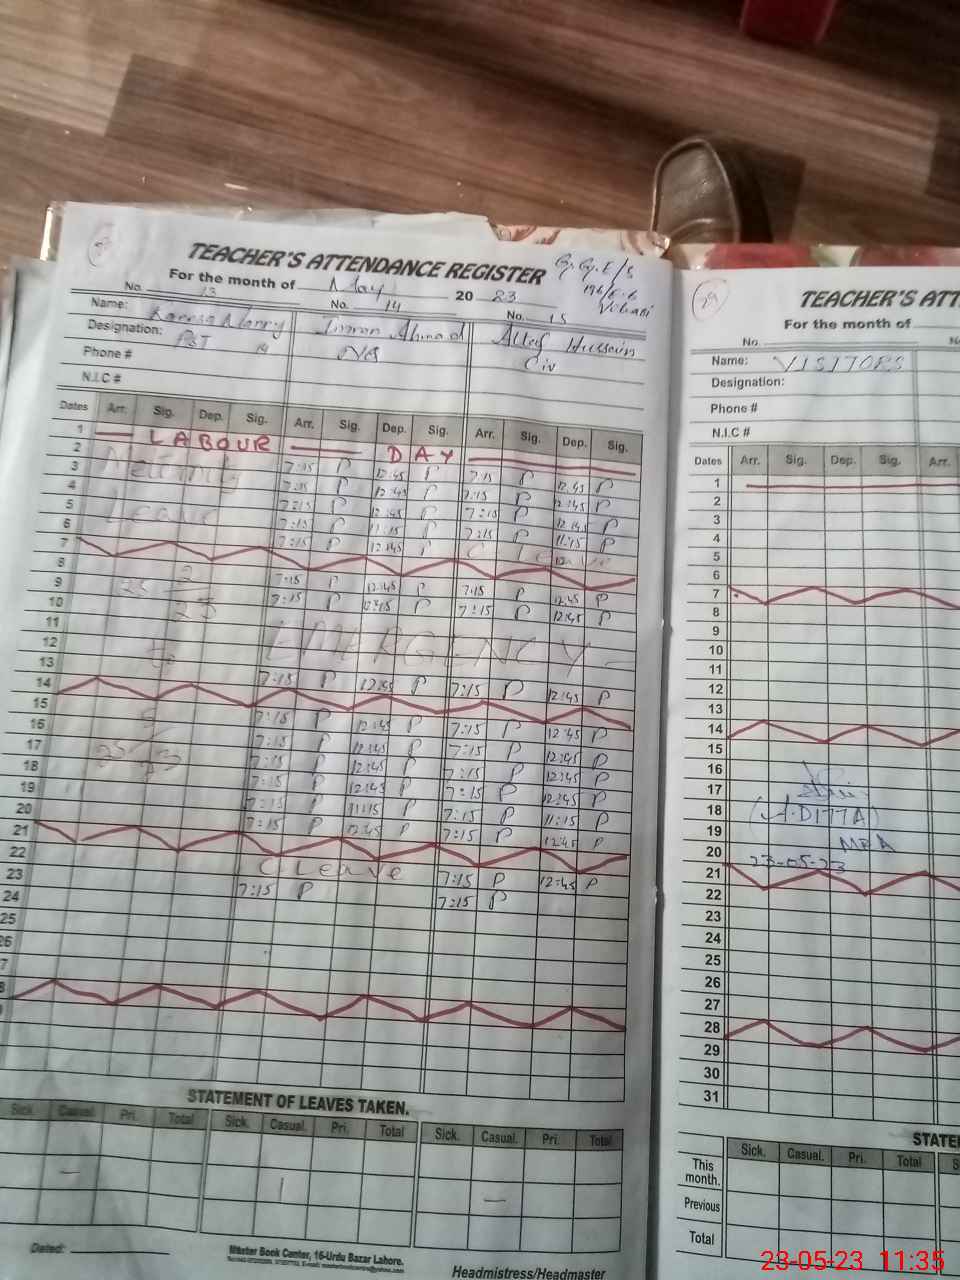 TEACHER'S ATTENDANCE REGISTER
For the month of May 2023
G. G. E/S
196/E.B
Vihari
No. 13 No. 14 No. 15
Name: Imran Ahmad Altaf Hussain
Designation: PST N/Q Civ
Phone #
N.I.C #
Dates Arr. Sig. Dep. Sig. Arr. Sig. Dep. Sig. Arr. Sig. Dep. Sig.
1 LABOUR DAY
2 7:15 P 12:45 P 7:15 P 12:45 P
3 7:15 P 12:45 P 7:15 P 12:45 P
4 Leave 7:15 P 12:45 P 7:15 P 12:45 P
5 7:15 P 11:15 P 7:15 P 11:15 P
6 7:15 P 12:45 P C Leave
7
8 7:15 P 12:45 P 7:15 P 12:45 P
9 7:15 P 12:45 P 7:15 P 12:45 P
10 EMERGENCY
11
12
13 7:15 P 12:45 P 7:15 P 12:45 P
14
15 7:15 P 12:45 P 7:15 P 12:45 P
16 7:15 P 12:45 P 7:15 P 12:45 P
17 7:15 P 12:45 P 7:15 P 12:45 P
18 7:15 P 12:45 P 7:15 P 12:45 P
19 7:15 P 11:15 P 7:15 P 11:15 P
20 7:15 P 12:45 P 7:15 P 12:45 P
21
22 C Leave 7:15 P 12:45 P
23 7:15 P 7:15 P
24
25
26
STATEMENT OF LEAVES TAKEN.
Sick. Casual. Pri. Total Sick. Casual. Pri. Total Sick. Casual. Pri. Total
Dated:
Master Book Center, 16-Urdu Bazar Lahore.
Headmistress/Headmaster
79
TEACHER'S ATT
For the month of
No.
Name: VISITORS
Designation:
Phone #
N.I.C #
Dates Arr. Sig. Dep. Sig. Arr.
1
2
3
4
5
6
7
8
9
10
11
12
13
14
15
16
17
18 (A.DITTA)
19 MEA
20 23-05-23
21
22
23
24
25
26
27
28
29
30
31
STATE
Sick. Casual. Pri. Total
This month.
Previous
Total
23-05-23 11:35